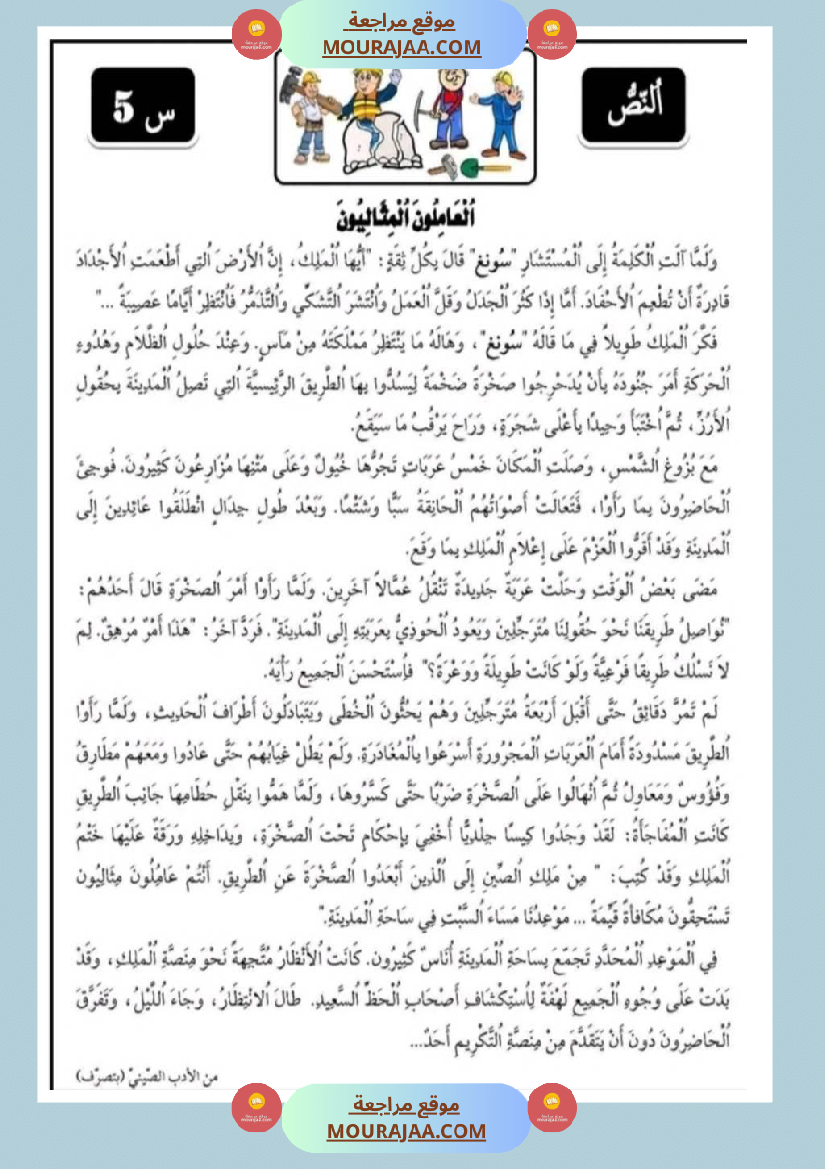 موقع مراجعة
MOURAJAA.COM
اَلنَّصُّ
س 5
اَلْعَامِلُونَ اَلْمِثَالِيُونَ
وَلَمَّا آلَتِ اُلْكَلِمَةُ إِلَى اُلْمُسْتَشَارِ "سُونغ" قَالَ بِكُلِّ ثِقَةٍ: "أَيُّهَا اُلْمَلِكُ، إِنَّ اُلأَرْضَ اُلتِي أَطْعَمَتِ اُلأَجْدَادَ
قَادِرَةٌ أَنْ تُطْعِمَ اُلأَحْفَادَ. أَمَّا إِذَا كَثُرَ اُلْجَدَلُ وَقَلَّ اُلْعَمَلُ وَاُنْتَشَرَ اُلتَّشَكِّي وَاُلتَّذَمُّرُ فَاُنْتَظِرْ أَيَّامًا عَصِيبَةً ..."
فَكَّرَ اُلْمَلِكُ طَوِيلاً فِي مَا قَالَهُ "سُونغ"، وَهَالَهُ مَا يَنْتَظِرُ مَمْلَكَتَهُ مِنْ مَآسٍ. وَعِنْدَ حُلُولِ اُلظَّلاَمِ وَهُدُوءِ
اُلْحَرَكَةِ أَمَرَ جُنُودَهُ بِأَنْ يُدَحْرِجُوا صَخْرَةً ضَخْمَةً لِيَسُدُّوا بِهَا اُلطَّرِيقَ اُلرَّئِيسِيَّةَ اُلتِي تَصِلُ اُلْمَدِينَةَ بِحُقُولِ
اُلأَرُزِّ، ثُمَّ اُخْتَبَأَ وَحِيدًا بِأَعْلَى شَجَرَةٍ، وَرَاحَ يَرْقُبُ مَا سَيَقَعُ.
مَعَ بُزُوغِ اُلشَّمْسِ، وَصَلَتِ اُلْمَكَانَ خَمْسُ عَرَبَاتٍ تَجُرُّهَا خُيُولٌ وَعَلَى مَتْنِهَا مُزَارِعُونَ كَثِيرُونَ. فُوجِئَ
اُلْحَاضِرُونَ بِمَا رَأَوْا، فَتَعَالَتْ أَصْوَاتُهُمُ اُلْحَانِقَةُ سَبًّا وَشَتْمًا. وَبَعْدَ طُولِ جِدَالٍ اُنْطَلَقُوا عَائِدِينَ إِلَى
اُلْمَدِينَةِ وَقَدْ أَقَرُّوا اُلْعَزْمَ عَلَى إِعْلاَمِ اُلْمَلِكِ بِمَا وَقَعَ.
مَضَى بَعْضُ اُلْوَقْتِ وَحَلَّتْ عَرَبَةٌ جَدِيدَةٌ تَنْقُلُ عُمَّالاً آخَرِينَ. وَلَمَّا رَأَوْا أَمْرَ اُلصَّخْرَةِ قَالَ أَحَدُهُمْ:
"نُوَاصِلُ طَرِيقَنَا نَحْوَ حُقُولِنَا مُتَرَجِّلِينَ وَيَعُودُ اُلْحُوذِيُّ بِعَرَبَتِهِ إِلَى اُلْمَدِينَةِ". فَرَدَّ آخَرُ: "هَذَا أَمْرٌ مُرْهِقٌ. لِمَ
لاَ نَسْلُكُ طَرِيقًا فَرْعِيَّةً وَلَوْ كَانَتْ طَوِيلَةً وَوَعْرَةً؟" فَاُسْتَحْسَنَ اُلْجَمِيعُ رَأْيَهُ.
لَمْ تَمُرَّ دَقَائِقُ حَتَّى أَقْبَلَ أَرْبَعَةُ مُتَرَجِّلِينَ وَهُمْ يَحُثُّونَ اُلْخُطَى وَيَتَبَادَلُونَ أَطْرَافَ اُلْحَدِيثِ، وَلَمَّا رَأَوْا
اُلطَّرِيقَ مَسْدُودَةً أَمَامَ اُلْعَرَبَاتِ اُلْمَجْرُورَةِ أَسْرَعُوا بِاُلْمُغَادَرَةِ. وَلَمْ يَطُلْ غِيَابُهُمْ حَتَّى عَادُوا وَمَعَهُمْ مَطَارِقُ
وَفُؤُوسٌ وَمَعَاوِلُ ثُمَّ اُنْهَالُوا عَلَى اُلصَّخْرَةِ ضَرْبًا حَتَّى كَسَّرُوهَا، وَلَمَّا هَمُّوا بِنَقْلِ حُطَامِهَا جَانِبَ اُلطَّرِيقِ
كَانَتِ اُلْمُفَاجَأَةُ: لَقَدْ وَجَدُوا كِيسًا جِلْدِيًّا أُخْفِيَ بِإِحْكَامٍ تَحْتَ اُلصَّخْرَةِ، وَبِدَاخِلِهِ وَرَقَةٌ عَلَيْهَا خَتْمُ
اُلْمَلِكِ وَقَدْ كُتِبَ: " مِنْ مَلِكِ اُلصِّينِ إِلَى اُلَّذِينَ أَبْعَدُوا اُلصَّخْرَةَ عَنِ اُلطَّرِيقِ. أَنْتُمْ عَامِلُونَ مِثَالِيُون
تَسْتَحِقُّونَ مُكَافَأَةً قَيِّمَةً ... مَوْعِدُنَا مَسَاءَ اُلسَّبْتِ فِي سَاحَةِ اُلْمَدِينَةِ."
فِي اُلْمَوْعِدِ اُلْمُحَدَّدِ تَجَمَّعَ بِسَاحَةِ اُلْمَدِينَةِ أُنَاسٌ كَثِيرُونَ. كَانَتْ اُلأَنْظَارُ مُتَّجِهَةً نَحْوَ مِنَصَّةِ اُلْمَلِكِ، وَقَدْ
بَدَتْ عَلَى وُجُوهِ اُلْجَمِيعِ لَهْفَةٌ لِاُسْتِكْشَافِ أَصْحَابِ اُلْحَظِّ اُلسَّعِيدِ. طَالَ اُلانْتِظَارُ، وَجَاءَ اُللَّيْلُ، وَتَفَرَّقَ
اُلْحَاضِرُونَ دُونَ أَنْ يَتَقَدَّمَ مِنْ مِنَصَّةِ اُلتَّكْرِيمِ أَحَدٌ...
من الأدب الصّينيّ (بتصرّف)
موقع مراجعة
MOURAJAA.COM